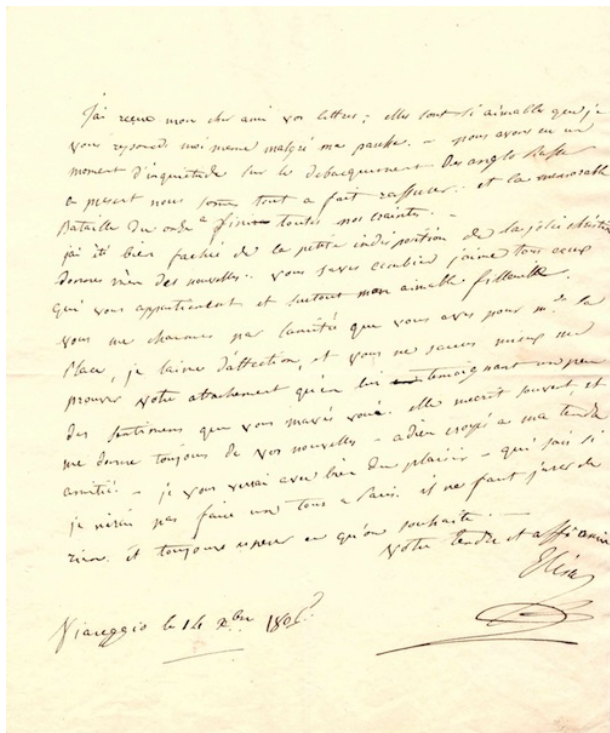 J'ai reçue mon cher ami vos lettres; elles sont si aimable que je
vous reponds moi meme malgré ma . – nous avons eu un
moment d'inquietude sur le debarquement des anglo Russe
a present nous somes tout a fait rassurer. et la memorable
Bataille du onze a toutes nos craintes. –
j'ai été bien faché de la petite indisposition de la jolie
donnes m'en des nouvelles. vous saves combien j'aime tous ceux
qui vous appartienent et surtout mon aimable filleuille.
vous me charmes par l'amitié que vous aves pour mde la
Place, je l'aime d'affection, et vous ne sauries mieux me
prouver votre attachement qu'en lui temoignant un peu
des sentimens que vous m'avés voué. elle m'ecrit souvent, et
me donne toujours de vos nouvelles – adieu croyés a ma tendre
amitié. – je vous verai avec bien du plaisir – qui sais si
je n'irai pas faire un tour a Paris. il ne faut jurer de
rien. et toujours esperer ce qu'on souhaite. –
votre tendre et affé amie
Elisa
Viareggio le 14 xbre 1805.